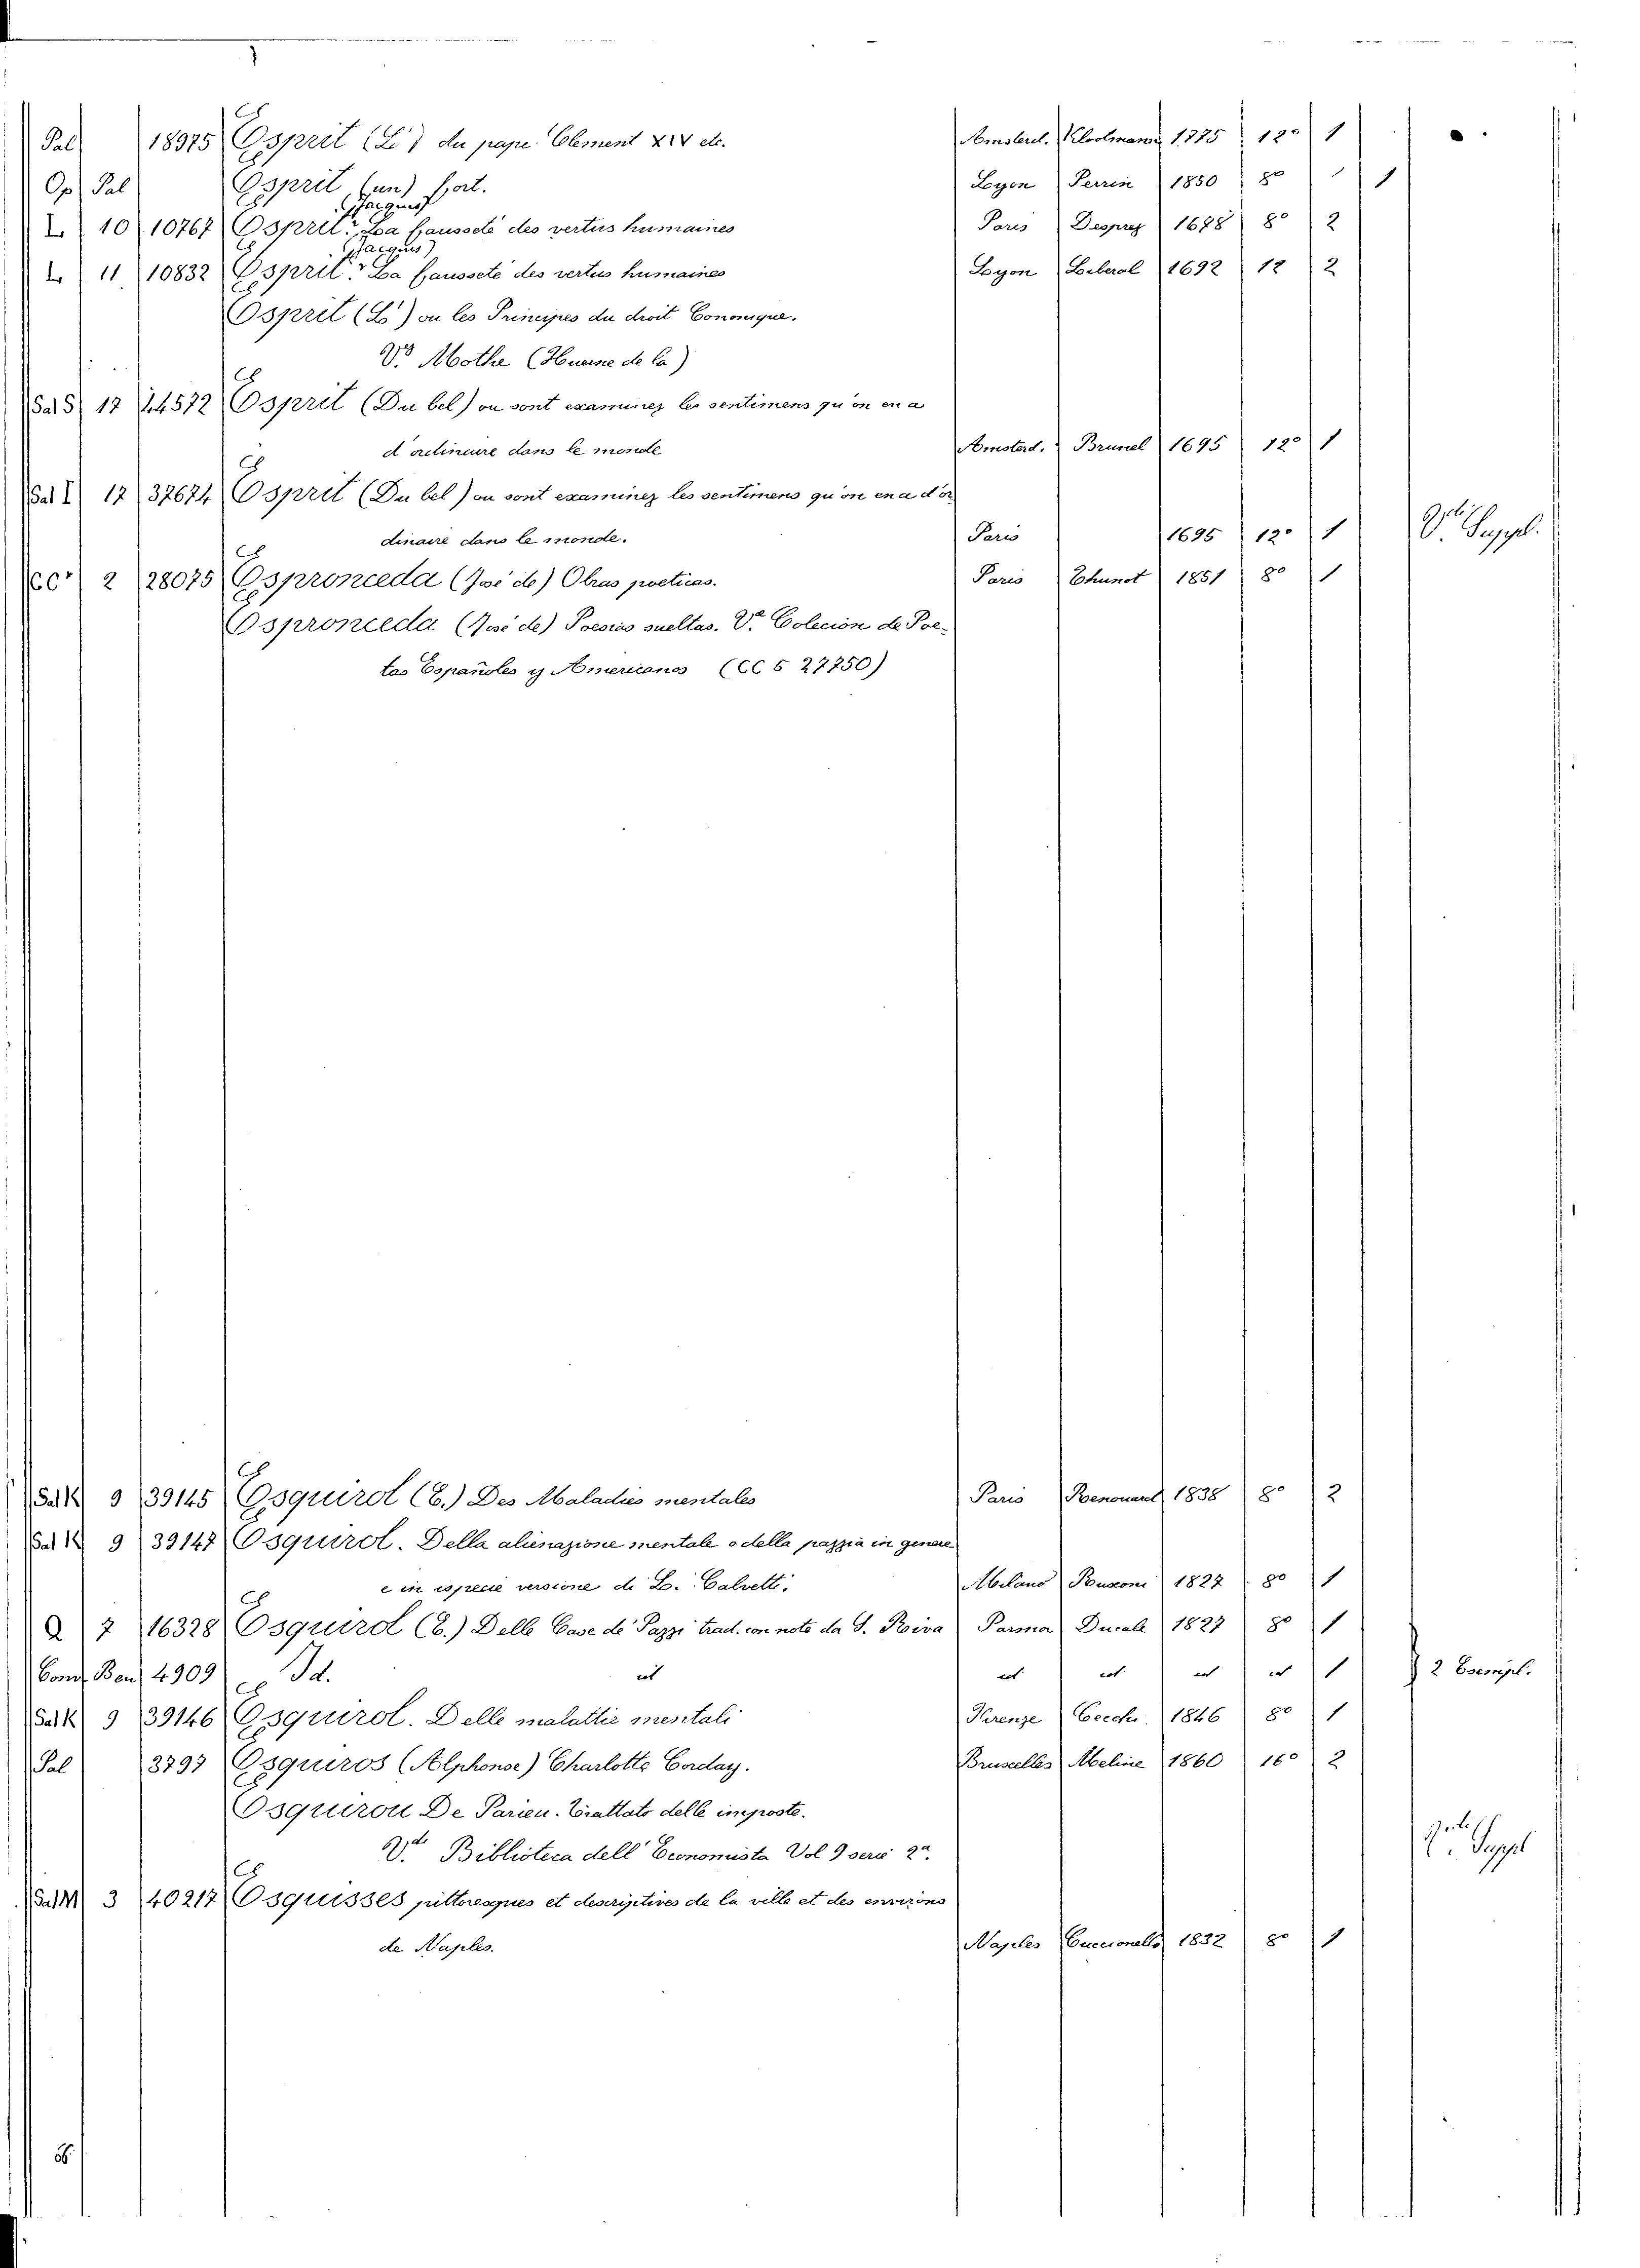 Pal 18975 Esprit (L') du pape Clement XIV etc. Amsterd. 1775 12º 1
Op Pal Esprit (un) fort. Lyon Perrin 1850 8º 1
(Jacques)
L 10 10767 Esprit. La fausseté des vertus humaines Paris Desprez 1678 8º 2
(Jacques)
L 11 10832 Esprit. La fausseté des vertus humaines Lyon Liberal 1692 12 2
Esprit (L') ou les Principes du droit Cononique.
Vº Mothe (Huerne de la)
Sal S 17 44572 Esprit (Du bel) ou sont examinez les sentimens qu'on en a
d'ordineire dans le monde Amsterd. Brunel 1695 12º 1
Sal I 17 37674 Esprit (Du bel) ou sont examinez les sentimens qu'on en a d'or
dinaire dans le monde. Paris 1695 12º 1 Vº Suppl.
CC 2 28075 Espronceda (José de) Obras poeticas. Paris Thunot 1851 8º 1
Espronceda (José de) Poesias sueltas. Vª Colecion de Poe-
tas Españoles y Americanos (CC 5 27750)
Sal K 9 39145 Esquirol (E.) Des Maladies mentales Paris Renouard 1838 8º 2
Sal K 9 39147 Esquirol. Della alienazione mentale o della pazzia in genere
e in ispecie versione di L. Calvetti. Milano Rusconi 1827 8º 1
Q 7 16328 Esquirol (E.) Delle Case de' Pazzi trad. con note da G. Riva Parma Ducale 1827 8º 1
Com Ben 4909 Id. id id id id id 1 2 Esempl.
Sal K 9 39146 Esquirol. Delle malattie mentali Firenze Cecchi 1846 8º 1
Pal 3797 Esquiros (Alphonse) Charlotte Corday. Bruxelles Meline 1860 16º 2
Esquirou De Parieu. Trattato delle imposte.
Vdi Biblioteca dell' Economista Vol 9 serie 2ª. Suppl
Sal M 3 40217 Esquisses pittoresques et descriptives de la ville et des environs
de Naples. Naples Cuccionello 1832 8º 1